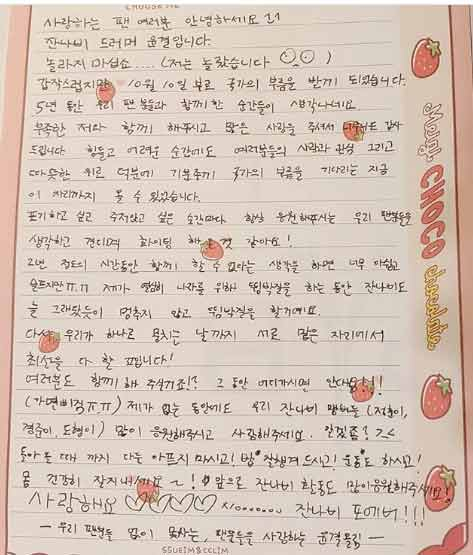 CHOUSE ME
사랑하는 팬 여러분 안녕하세요!!
잔나비 드러머 윤결입니다.
놀라지 마십쇼.... (저는 놀랐습니다)
갑작스럽지만 10월 10일 부로 국가의 부름을 받게 되었습니다.
5년 동안 우리 팬 분들과 함께 한 순간들이 생각나네요.
부족한 저와 함께 해주시고 많은 사랑을 주셔서 너무나도 감사
드립니다. 힘들고 어려운 순간에도 여러분들의 사랑과 관심 그리고
따뜻한 위로 덕분에 기분좋게 국가의 부름을 기다리는 지금
이 자리까지 올 수 있었습니다.
포기하고 싶고 주저앉고 싶은 순간마다 항상 응원해주시는 우리 팬분들을
생각하고 견디며 화이팅 해 온 것 같아요!
2년 정도의 시간동안 함께 할 수 없다는 생각을 하면 너무 아쉽고
슬프지만ㅠ.ㅠ 제가 열심히 나라를 위해 뜀박질을 하는 동안 잔나비도
늘 그래왔듯이 멈추지 않고 뜀박질을 할거예요.
다시 우리가 하나로 뭉치는 날까지 서로 맡은 자리에서
최선을 다 할 겁니다!
여러분도 함께 해 주실거죠!? 그 동안 어디가시면 안대요!!!
(가면삐짐ㅠㅠ) 제가 없는 동안에도 우리 잔나비 멤버들 (정훈이,
경준이, 도형이) 많이 응원해주시고 사랑해주세요. 알겠죠? ><
돌아올 때 까지 다들 아프지 마시고! 밥 잘챙겨 드시고! 운동도 하시고!
몸 건강히 잘지내세요~! 앞으로 잔나비 활동도 많이응원해주세요!!
사랑해요 ♡♡♡♡ x10000000 잔나비 포에버!!!
- 우리 팬분들 없이 못사는, 팬분들을 사랑하는 윤결올림 -
SSUEIM&CCLIM
Mong CHOCO chocolate